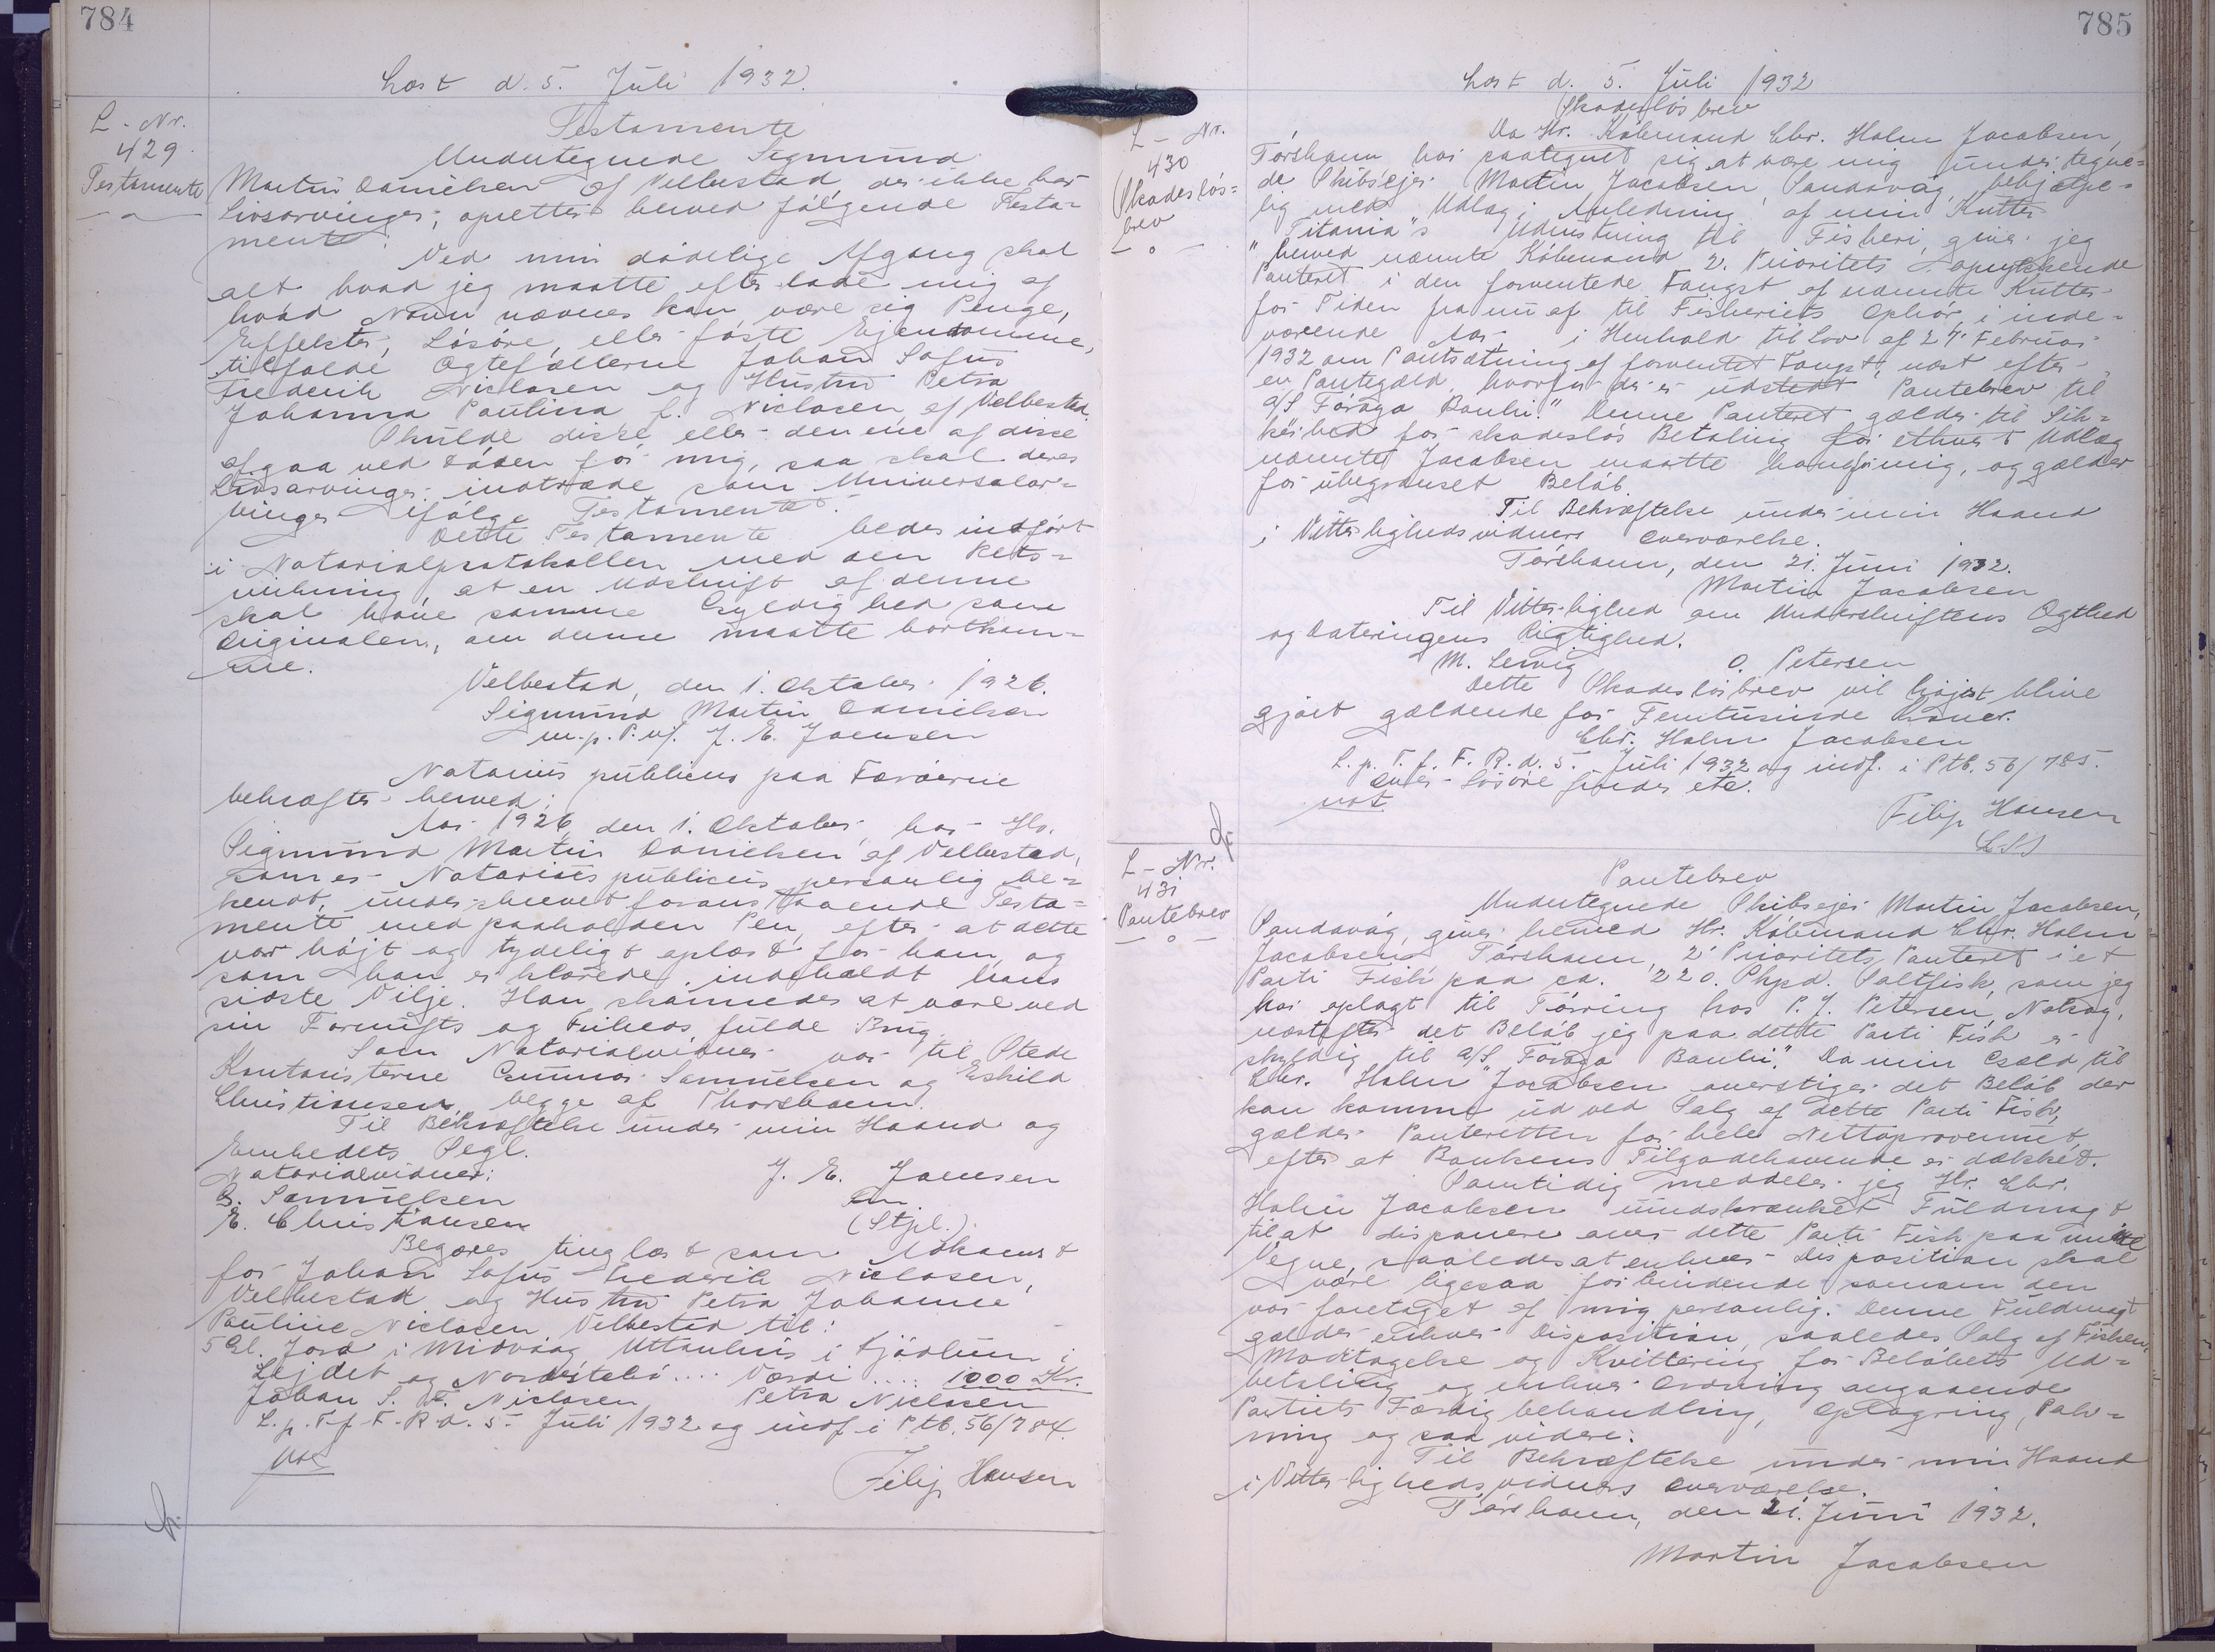 784
Læst d. 5. Juli 1932.
L-Nr.
429
Testamente
Testamente
Undertegnede Sigmund
Martin Danielsen af Velbestad, der ikke har
Livsarvinger, opretter herved følgende Testa=
mente:
Ved min dødelige Afgang skal
alt hvad jeg maatte efterlade mig af
hvad Navn nævnes kan, være sig Penge,
Effekter, Løsøre, eller faste Ejendomme,
tilfalde Ægtefællerne Johan Sofus
Frederik Niclasen og Hustru Petra
Johanna Paulina f. Niclasen af Velbestad.
Skulde disse eller den ene af disse
afgaa ved Døden før mig, saa skal deres
Livsarvinger indtræde som Universalar=
vinger ifølge Testamentet.
Dette Testamente bedes indført
i Notarialprotokollen med den Rets=
virkning, at en Udskrift af denne
skal have samme Gyldighed som
Originalen, om denne maatte bortkom=
me.
Velbestad, den 1. Oktober 1926.
Sigmund Martin Danielsen
m.p.P. v/. J. E. Joensen
Notarius publicus paa Færøerne
bekræfter herved:
Aar 1926, den 1. Oktober, har Hr.
Sigmund Martin Danielsen af Velbestad,
som er Notarius publicus personlig be=
kendt, underskrevet foranstaaende Testa=
mente med paaholden Pen, efter at dette
var højt og tydeligt oplæst for ham, og
som han erklærede, indeholdt hans
sidste Vilje. Han skønnedes at være ved
sin Fornufts og Friheds fulde Brug.
Som Notarialvidner var til Stede
Kontoristerne Gunnar Samuelsen og Eskild
Christiansen, begge af Thorshavn.
Til Bekræftelse under min Haand og
Embedets Segl.
Notarialvidner:
J. E. Joensen
G. Samuelsen
E. Christiansen
(Stpl.)
Begæres tinglæst som Adkomst
for Johan Sofus Frederik Niclasen,
Velbestad og Hustru Petra Johanne
Pauline Niclasen, Velbestad til:
5 Gl. Jord i Midvaag Uttanhús i Kjødlum i
Lejdet og .... Værdi .... 1000 Kr.
Johan S. F. Niclasen Petra Niclasen
L. p. T. f. F. R. d. 5. Juli 1932 og indf. i Ptb. 56/784.
Not
Filip Hansen
785
Læst d. 5. Juli 1932
L-Nr.
430
Skadesløs=
brev
Skadesløsbrev
Da Hr. Købmand Chr. Holm Jacobsen,
Tórshavn har paategnet sig at være mig undertegne=
de Skibsejer Martin Jacobsen, Sandavág, behjælpe=
lig med Udlæg i Anledning af min Kutter
"Titania"s Udrustning til Fiskeri, giver jeg
herved nævnte Købmand 2. Prioritets oprykkende
Panteret i den forventede Fangst af nævnte Kutter
for Tiden fra nu af til Fiskeriets Ophør i inde=
værende Aar, i Henhold til Lov af 27. Februar
1932 om Pantsætning af forventet Fangst, næst efter
en Pantegæld, hvorfor der er udstedt Pantebrev til
A/S "Føroya Banki." Denne Panteret gælder til Sik=
kerhed for skadesløs Betaling for ethvert Udlæg
nævnte Jacobsen maatte have for mig, og gælder
for ubegrænset Beløb.
Til Bekræftelse under min Haand
i Vitterlighedsvidners Overværelse.
Tórshavn, den 21. Juni 1932.
Martin Jacobsen
Til Vitterlighed om Underskriftens Ægthed
og Dateringens Rigtighed.
M. Lervig O. Petersen
Dette Skadesløsbrev vil højest blive
gjort gældende for Femtusinde Kroner.
Chr. Holm Jacobsen
L. p. T. f. F. R. d. 5. Juli 1932 og indf. i Ptb. 56/785.
Over Løsøre findes etc.
not
Filip Hansen
L-Nr.
431
Pantebrev
Pantebrev
Undertegnede Skibsejer Martin Jacobsen,
Sandavág, giver herved Hr. Købmand Chr. Holm
Jacobsen Tórshavn, 2' Prioritets Panteret i et
Parti Fisk paa ca. 220. Skpd. Saltfisk, som jeg
har oplagt til Tørring hos P. J. Petersen,
næstefter det Beløb jeg paa dette Parti Fisk er
skyldig til A/S "Føroya Banki." Da min Gæld til
Chr. Holm Jacobsen overstiger det Beløb der
kan komme ud ved Salg af dette Parti Fisk,
gælder Panteretten for hele Nettoprovenuet,
efter at Bankens Tilgodehavende er dækket.
Samtidig meddeler jeg Hr. Chr.
Holm Jacobsen uindskrænket Fuldmagt
til at disponere over dette Parti Fisk paa mine
Vegne, saaledes at enhver Disposition skal
være ligesaa forbindende somom den
var foretaget af mig personlig. Denne Fuldmagt
gælder enhver Disposition, saaledes Salg af Fisken,
Modtagelse og Kvittering for Beløbets Ud=
betaling og enhver Ordning angaaende
Partiets Færdigbehandling, Oplagring, Pak=
ning og saa videre.
Til Bekræftelse under min Haand
i Vitterlighedsvidners Overværelse.
Tórshavn, den 21. Juni 1932.
Martin Jacobsen